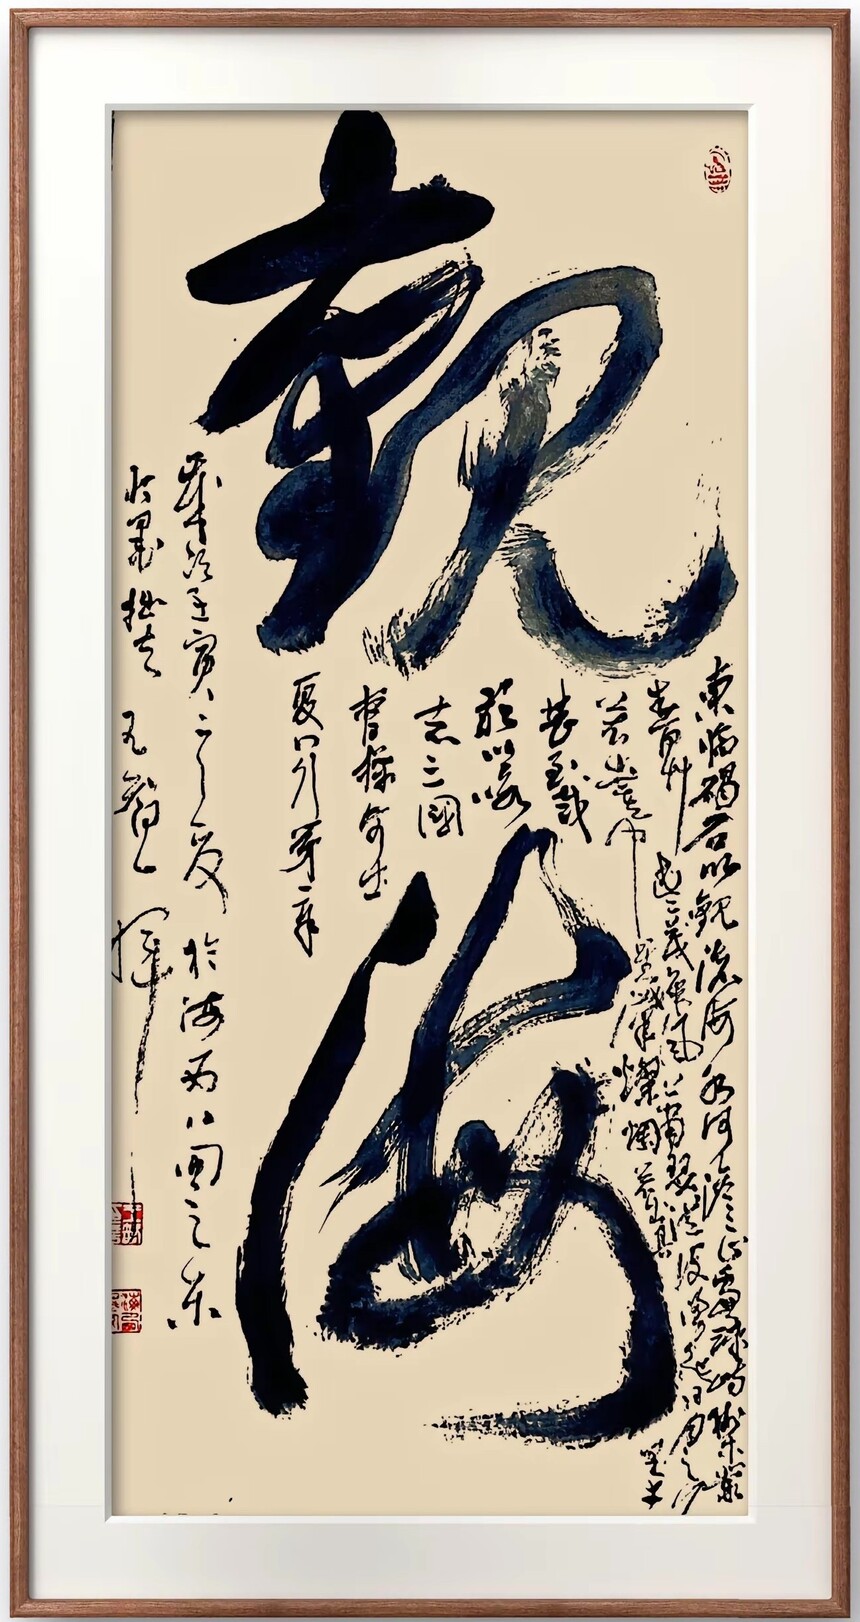 觀海
東臨碣石以觀滄海水何澹澹山島竦峙樹木叢
生百草豐茂秋風蕭瑟洪波湧起日月之行
若出其中星漢燦爛若出其里幸
甚至哉
歌以詠
志三國
曹操步出
夏門行
歲次壬寅之夏於海西八閩之東